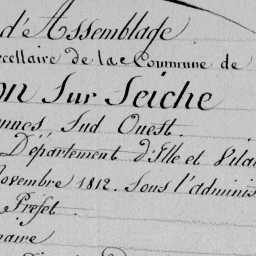 d'Assemblage
cellaire de la Commune de
on Sur Seiche
nnes, Sud Ouest.
Département d'Ille et Vila
ovembre 1812. Sous l'adminis
Préfet.
aire